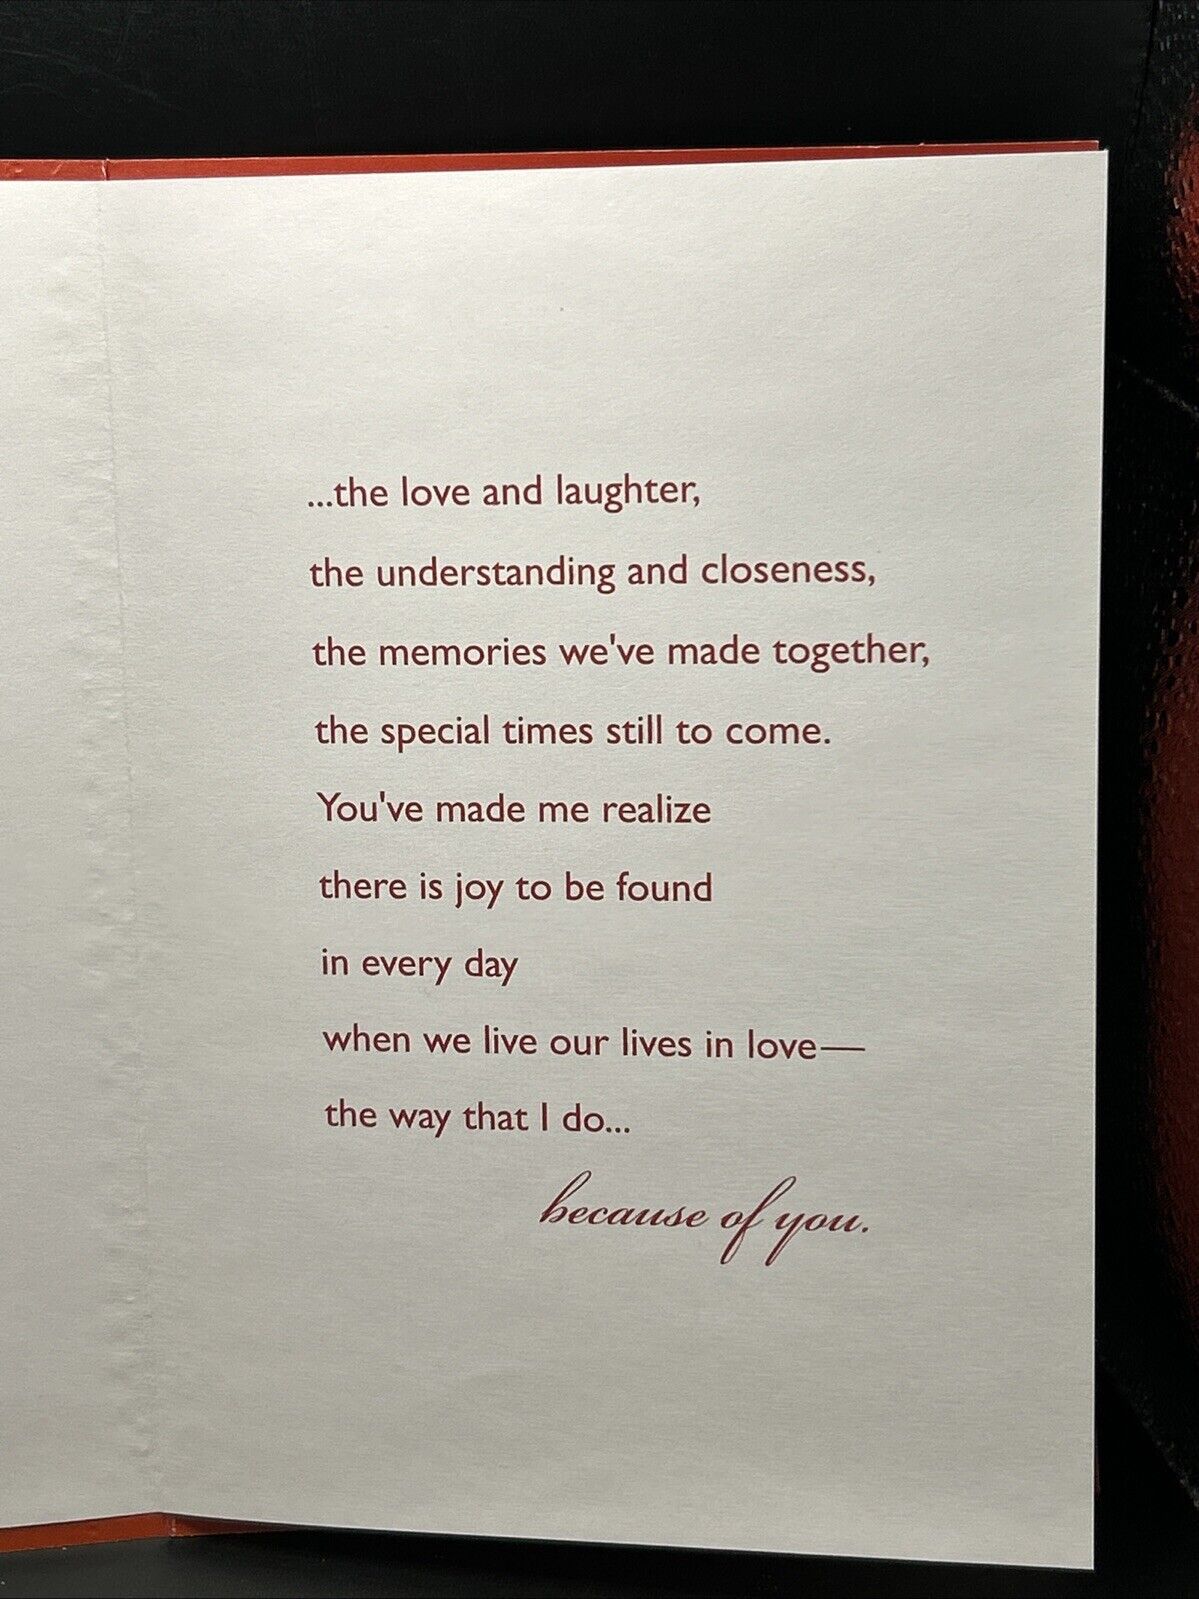 ...the love and laughter,
the understanding and closeness,
the memories we've made together,
the special times still to come.
You've made me realize
there is joy to be found
in every day
when we live our lives in love—
the way that I do...
because of you.